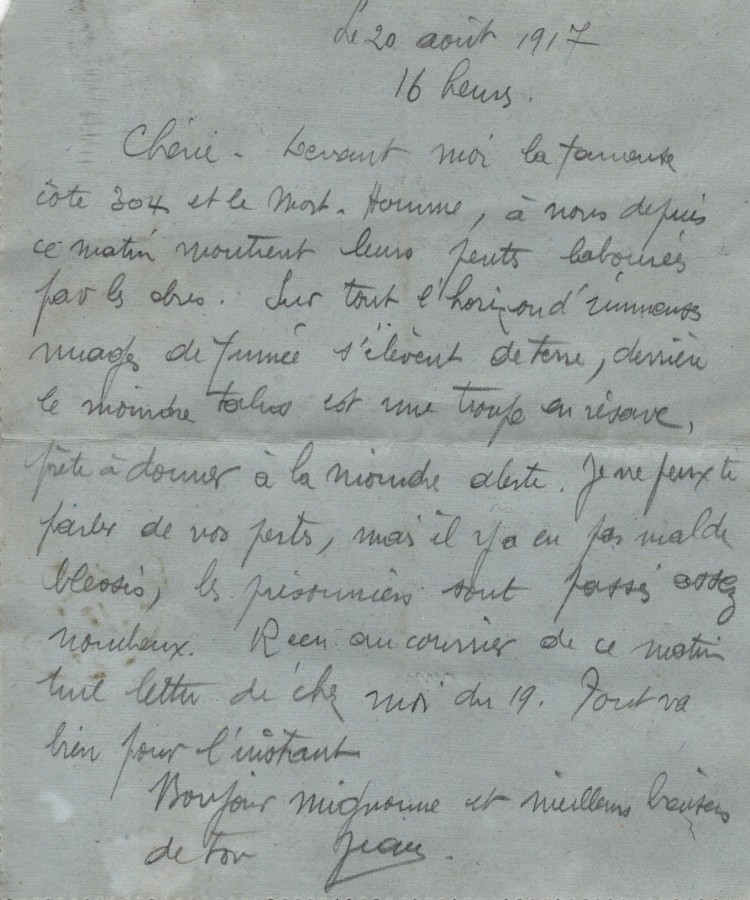 Le 20 août 1917
16 heures.
Chérie - Devant moi la fameuse
côte 304 et le Mort-Homme, à nous depuis
ce matin montrent leurs pentes labourées
par les obus. Sur tout l'horizon d'immenses
nuages de fumée s'élèvent de terre, derrière
le moindre talus est une troupe en réserve,
prête à donner à la moindre alerte. Je ne peux te
parler de nos pertes, mais il y a eu pas mal de
blessés, les prisonniers sont passés assez
nombreux. Reçu au courrier de ce matin
une lettre de chez moi du 19. Tout va
bien pour l'instant
Bonjour mignonne et meilleurs baisers
de ton Jean.